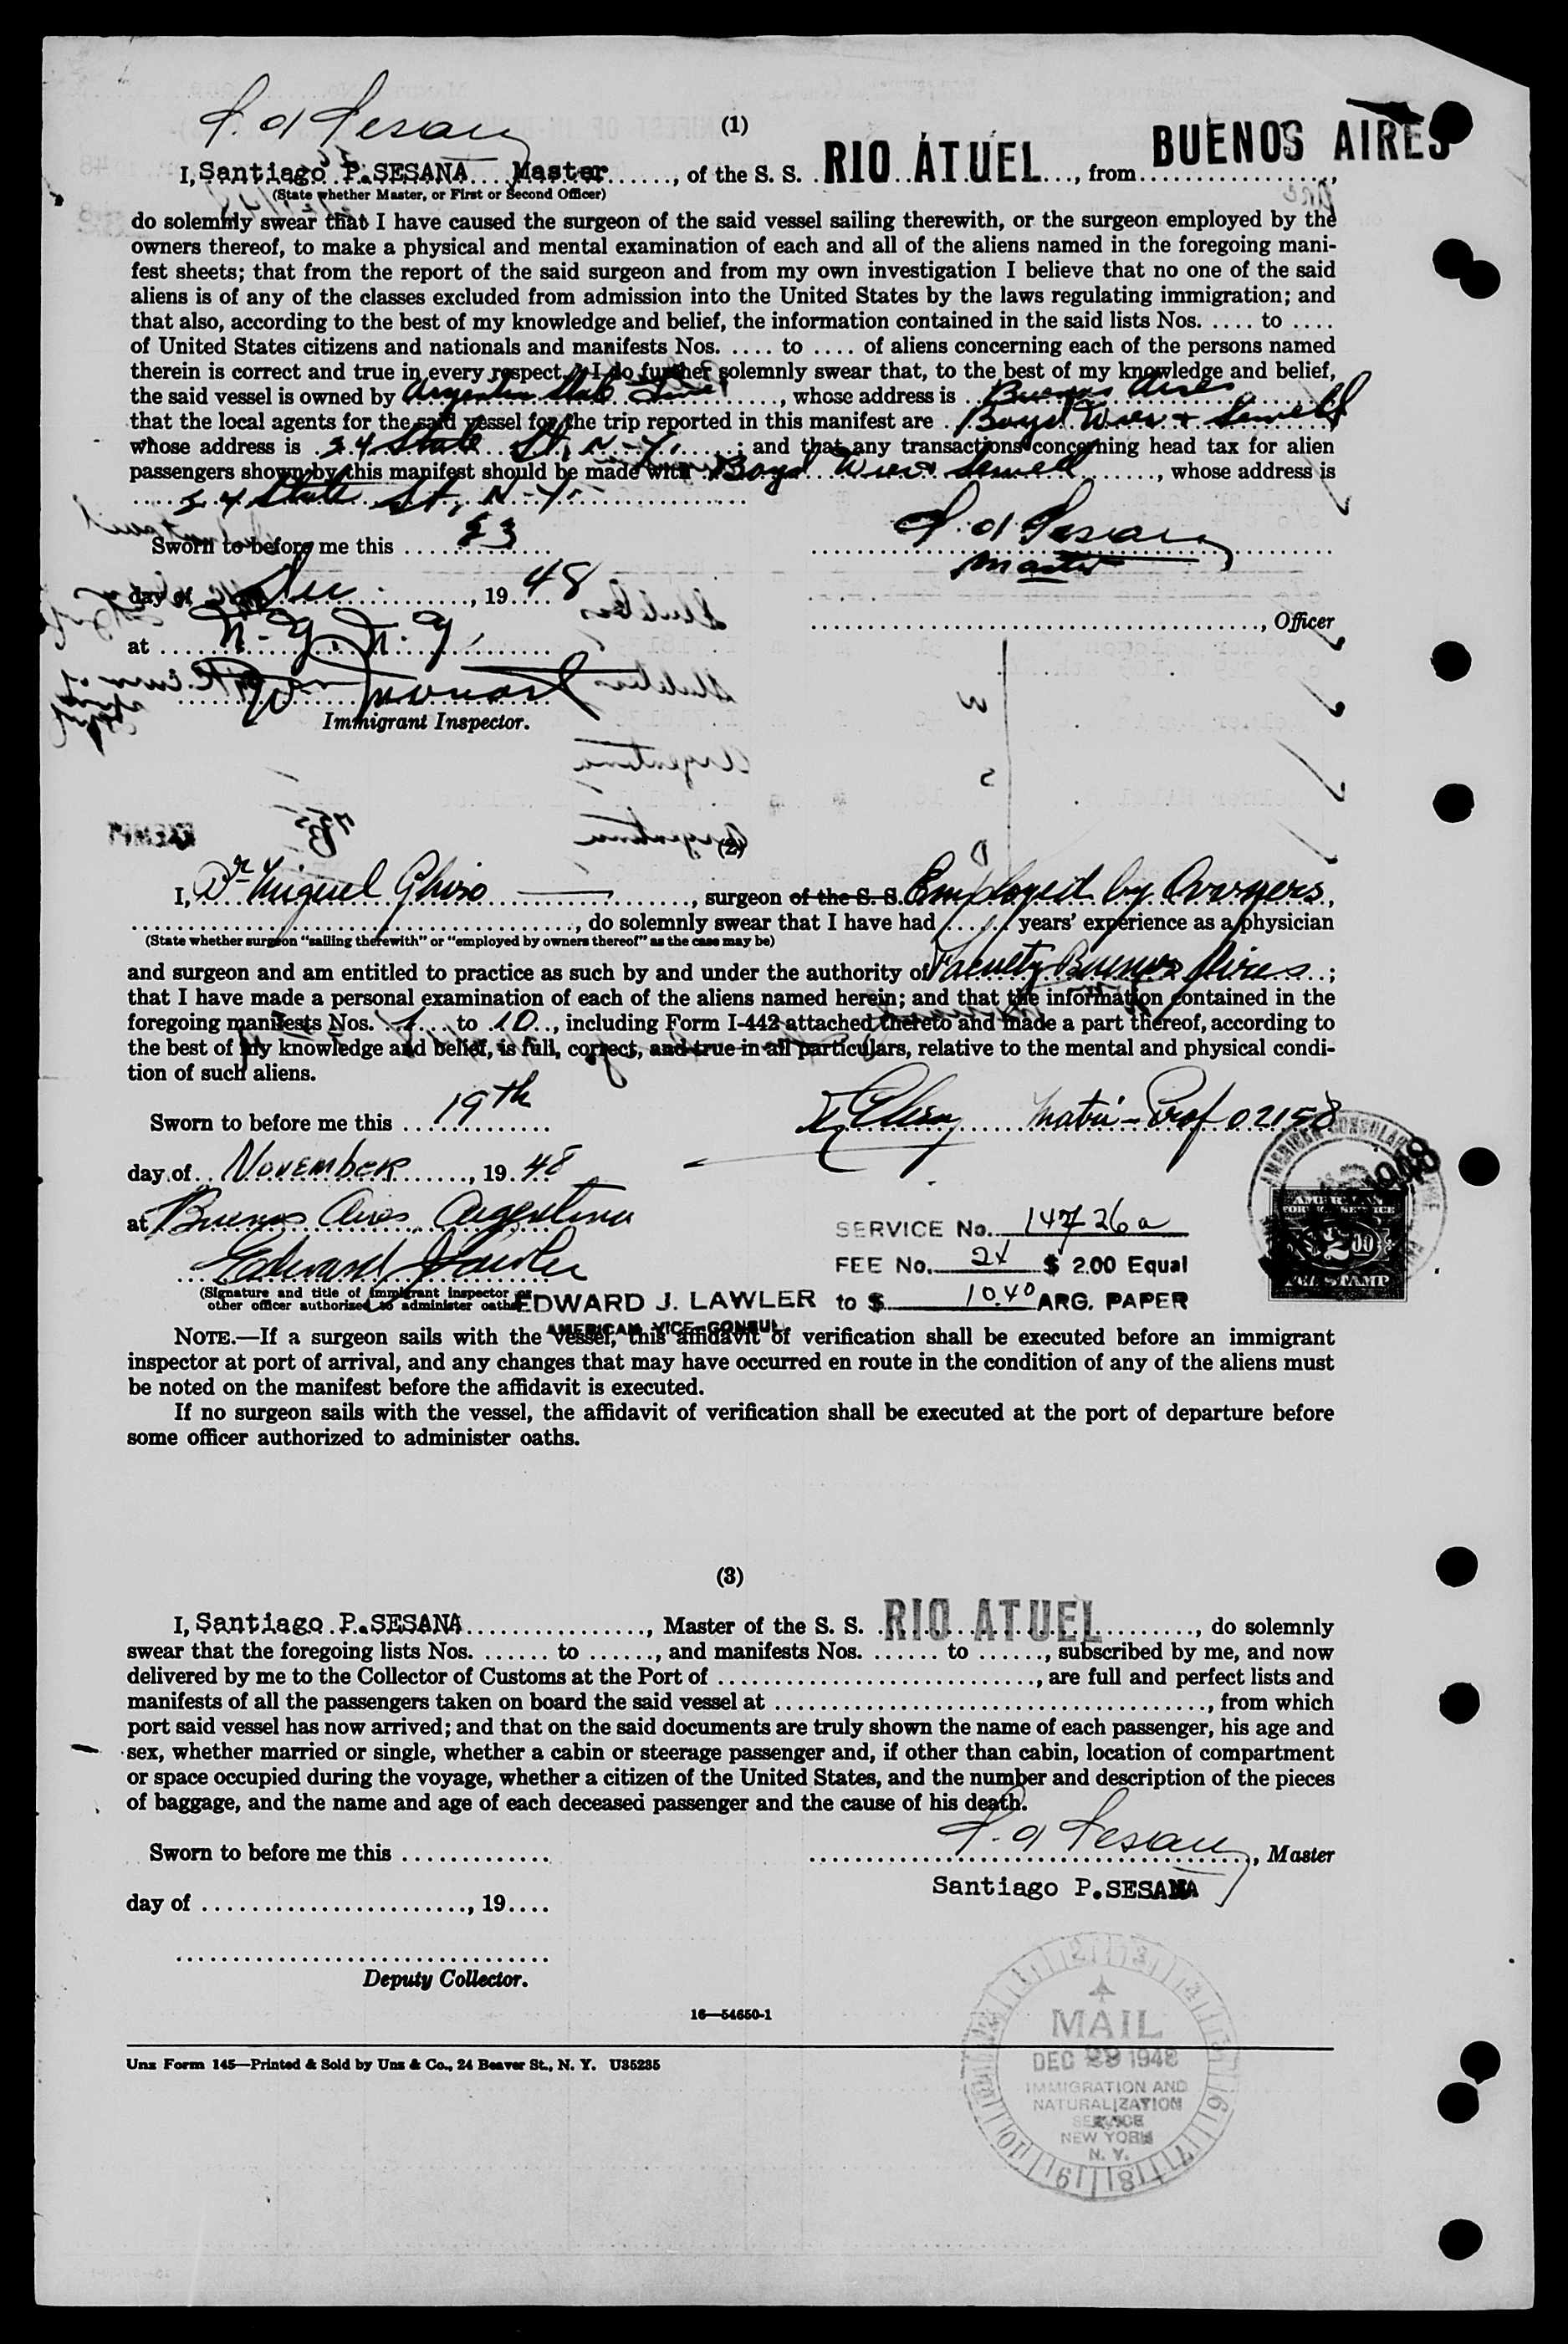 (1)
I, Santiago P. SESANA Master, of the S. S. RIO ATUEL, from BUENOS AIRES,
(State whether Master, or First or Second Officer)
do solemnly swear that I have caused the surgeon of the said vessel sailing therewith, or the surgeon employed by the
owners thereof, to make a physical and mental examination of each and all of the aliens named in the foregoing mani-
fest sheets; that from the report of the said surgeon and from my own investigation I believe that no one of the said
aliens is of any of the classes excluded from admission into the United States by the laws regulating immigration; and
that also, according to the best of my knowledge and belief, the information contained in the said lists Nos. .... to ....
of United States citizens and nationals and manifests Nos. .... to .... of aliens concerning each of the persons named
therein is correct and true in every respect. I do further solemnly swear that, to the best of my knowledge and belief,
the said vessel is owned by Argentin State Line, whose address is Buenos Aires
that the local agents for the said vessel for the trip reported in this manifest are Boyd Wier & Sewell
whose address is 24 State St, N-Y.; and that any transactions concerning head tax for alien
passengers shown by this manifest should be made with Boyd Wier & Sewell, whose address is
24 State St, N-Y-
Sworn to before me this 23
Master
day of Dec, 19 48
, Officer
at N.Y. N.Y.
Immigrant Inspector.
(2)
I, Dr Miguel Ghiso, surgeon of the S. S. Employed by Owners,
, do solemnly swear that I have had ...... years' experience as a physician
(State whether surgeon "sailing therewith" or "employed by owners thereof" as the case may be)
and surgeon and am entitled to practice as such by and under the authority of Faculty Buenos Aires;
that I have made a personal examination of each of the aliens named herein; and that the information contained in the
foregoing manifests Nos. 1 to 10, including Form I-442 attached thereto and made a part thereof, according to
the best of my knowledge and belief, is full, correct, and true in all particulars, relative to the mental and physical condi-
tion of such aliens.
Sworn to before me this 19th
Matri-Prof 02158
day of November, 19 48
at Buenos Aires, Argentina
Edward J Lawler
SERVICE No. 14726a
FEE No. 24 $ 2.00 Equal
to $ 10.40 ARG. PAPER
AMERICAN CONSULAR
1948
AMERICAN
FOREIGN SERVICE
$2.00
FEE STAMP
(Signature and title of immigrant inspector or
other officer authorized to administer oaths)
EDWARD J. LAWLER
AMERICAN VICE-CONSUL
NOTE.—If a surgeon sails with the vessel, this affidavit of verification shall be executed before an immigrant
inspector at port of arrival, and any changes that may have occurred en route in the condition of any of the aliens must
be noted on the manifest before the affidavit is executed.
If no surgeon sails with the vessel, the affidavit of verification shall be executed at the port of departure before
some officer authorized to administer oaths.
(3)
I, Santiago P. SESANA, Master of the S. S. RIO ATUEL, do solemnly
swear that the foregoing lists Nos. ...... to ......, and manifests Nos. ...... to ......, subscribed by me, and now
delivered by me to the Collector of Customs at the Port of ............, are full and perfect lists and
manifests of all the passengers taken on board the said vessel at ............, from which
port said vessel has now arrived; and that on the said documents are truly shown the name of each passenger, his age and
sex, whether married or single, whether a cabin or steerage passenger and, if other than cabin, location of compartment
or space occupied during the voyage, whether a citizen of the United States, and the number and description of the pieces
of baggage, and the name and age of each deceased passenger and the cause of his death.
Sworn to before me this ............
, Master
Santiago P. SESANA
day of ............, 19....
Deputy Collector.
16—54650-1
Unz Form 145—Printed & Sold by Unz & Co., 24 Beaver St., N. Y. U35235
MAIL
DEC 29 1948
IMMIGRATION AND
NATURALIZATION
SERVICE
NEW YORK
N. Y.